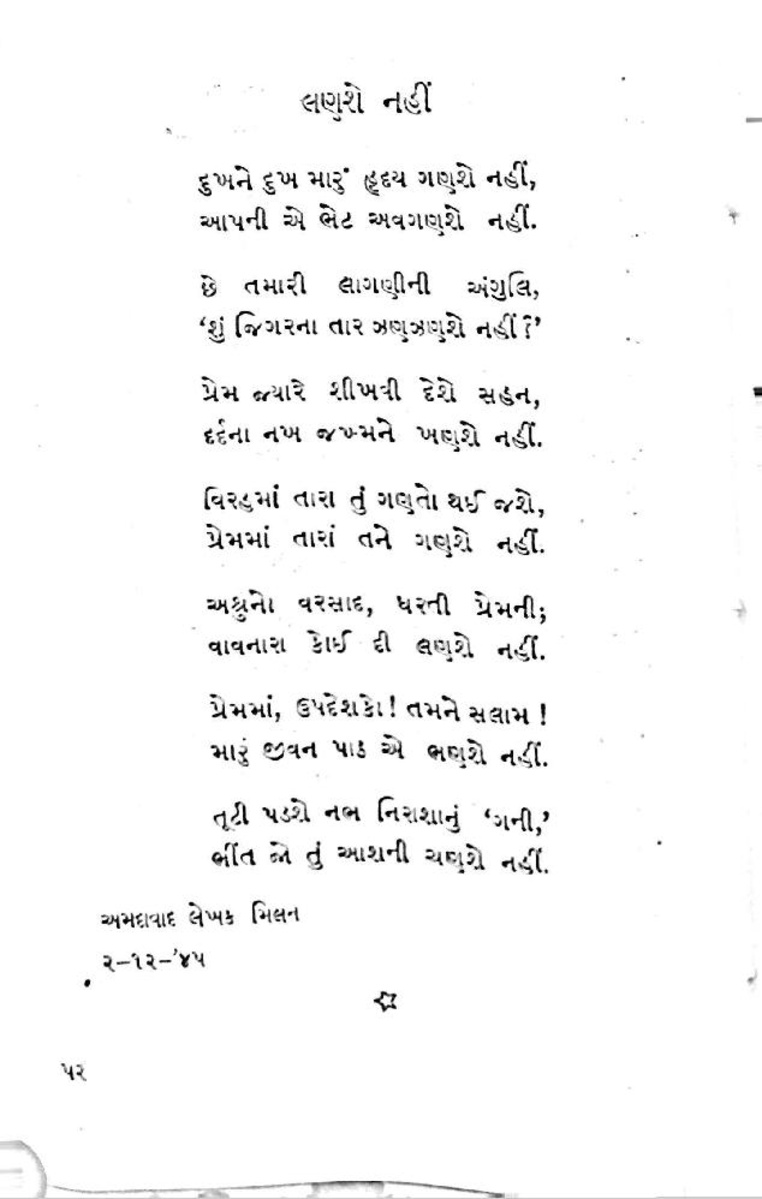 લણશે નહીં
દુખને દુખ મારું હૃદય ગણશે નહીં,
આપની એ ભેટ અવગણશે નહીં.
છે તમારી લાગણીની અંગુલિ,
‘શું જિગરના તાર ઝણઝણશે નહીં?’
પ્રેમ જ્યારે શીખવી દેશે સહન,
દર્દના નખ જખ્મને ખણશે નહીં.
વિરહમાં તારા તું ગણતો થઈ જશે,
પ્રેમમાં તારાં તને ગણશે નહીં.
અશ્રુનો વરસાદ, ધરતી પ્રેમની;
વાવનારા કોઈ દી લણશે નહીં.
પ્રેમમાં, ઉપદેશકો! તમને સલામ!
મારું જીવન પાઠ એ ભણશે નહીં.
તૂટી પડશે નભ નિરાશાનું ‘ગની,’
ભીંત જો તું આશની ચણશે નહીં.
અમદાવાદ લેખક મિલન
૨–૧૨–’૪૫
૫૨